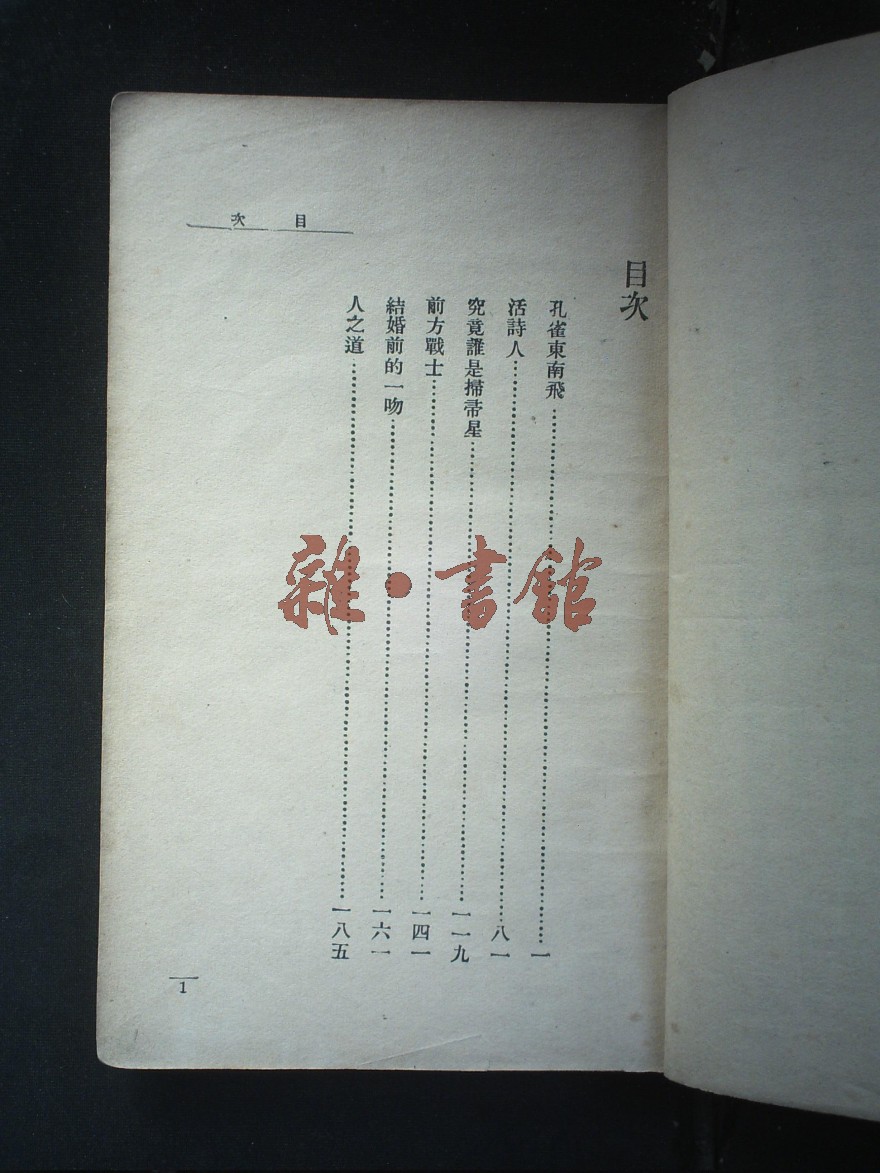 目次
目次
孔雀東南飛⋯⋯⋯⋯⋯⋯一
活詩人⋯⋯⋯⋯⋯⋯八一
究竟誰是掃帚星⋯⋯⋯⋯⋯⋯一一九
前方戰士⋯⋯⋯⋯⋯⋯一四一
結婚前的一吻⋯⋯⋯⋯⋯⋯一六一
人之道⋯⋯⋯⋯⋯⋯一八五
1
雜·書館